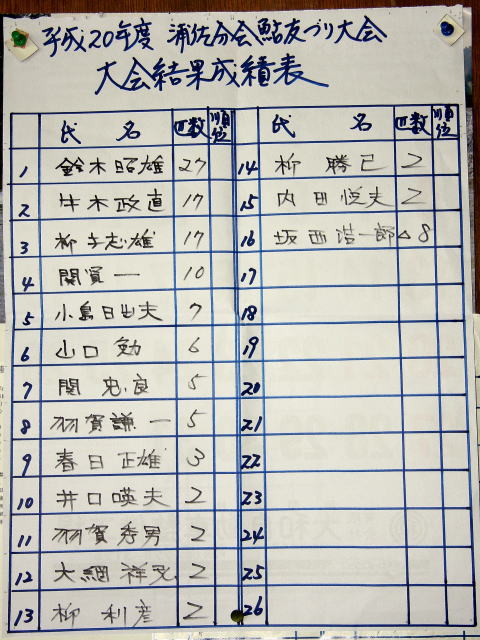 平成20年度 浦佐分会鮎友づり大会
大会結果成績表
氏 名 匹数 順位 氏 名 匹数 順位
1 鈴木昭雄 27
2 牛木政直 17
3 柳 志雄 17
4 関賢一 10
5 小島日出夫 7
6 山口 勉 6
7 関 忠良 5
8 羽賀謙一 5
9 春日正雄 3
10 井口暎夫 2
11 羽賀秀男 2
12 大綱祥 2
13 柳 利彦 2
14 柳 勝己 2
15 内田悦夫 2
16 坂西浩一郎 △8
17
18
19
20
21
22
23
24
25
26